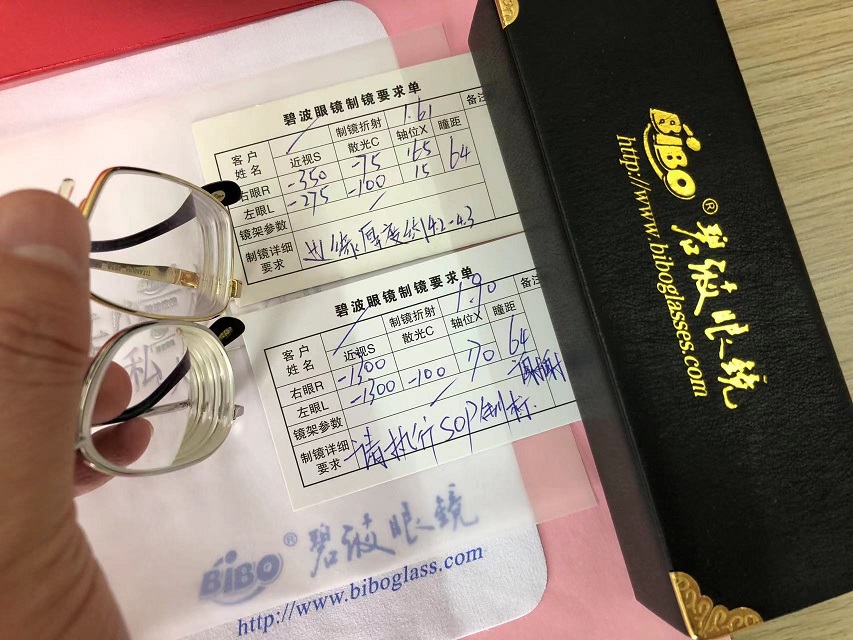 碧波眼镜制镜要求单
客户姓名 / 制镜折射 1.61 备注
近视S 散光C 轴位X 瞳距
右眼R -350 -75 165 64
左眼L -275 -100 15
镜架参数 /
制镜详细要求 边缘厚度约4.2-4.3
碧波眼镜制镜要求单
客户姓名 / 制镜折射 1.90 备注
近视S 散光C 轴位X 瞳距
右眼R -1300 64
左眼L -1300 -100 70
镜架参数 /
制镜详细要求 请执行SOP制标. 谢谢
TITANIUM
私
BiBO® 碧波眼镜
http://www.biboglass.com
BiBO® 碧波眼镜
http://www.biboglasses.com